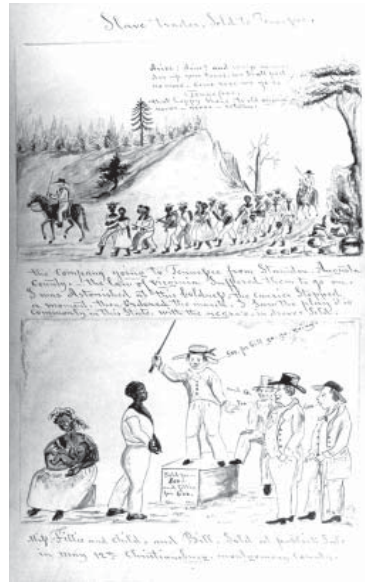 Slave trader, Sold to Tennessee,
Arise! Arise! and weep no more
dry up your tears, we shall part
no more. Come rose we go to
Tennessee,
that happy shore. to old
never - never - return.
the Company going to Tennessee from Staunton, Augusta
County. the law of Virginia Suffered them to go on.
I was Astonished at this boldness, the carrier Stopped
a moment, then Ordered the march, I Saw the play it is
commonly in this State, with the negro's in droves Sold.
going.
Sold for
and
for
Miss Fillis and child, and Bill, Sold at publick Sale
in May 12th Christiansburg, Montgomery County.